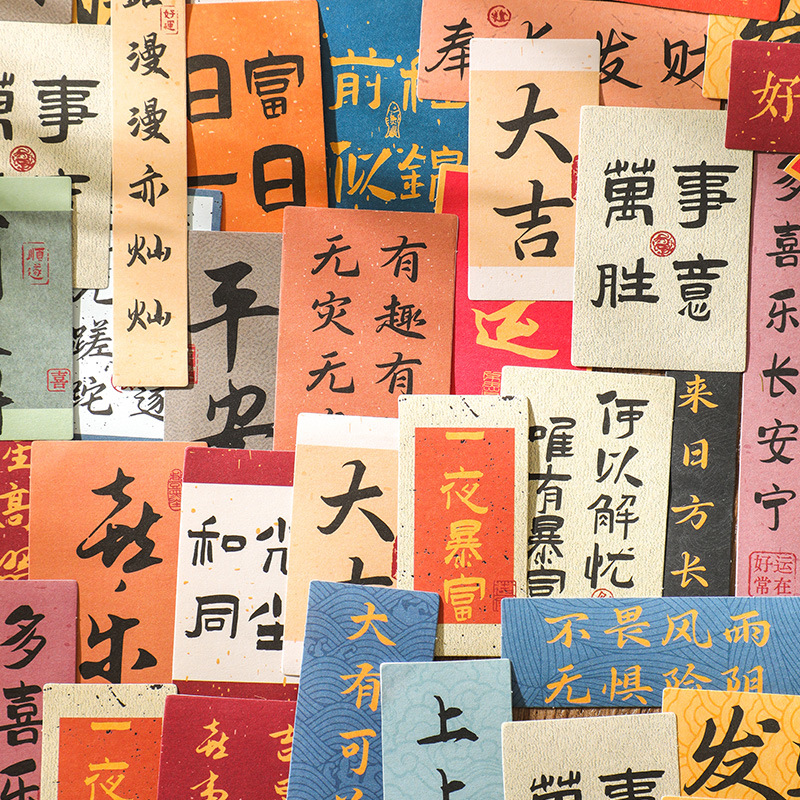 好運
漫漫亦灿灿
事
日富
一日
前程
似錦
奉
发财
大吉
好
萬事
胜意
多喜乐长安宁
好运
常在
順遂
喜
蹉跎
遂
平安
无灾无
有趣有
运
来日方长
何以解忧
唯有暴富
一夜暴富
喜乐
和光
同尘
大吉
生高照
多喜乐
一夜
喜事
吉
大有可
上上
不畏风雨
无惧险阻
萬事
发